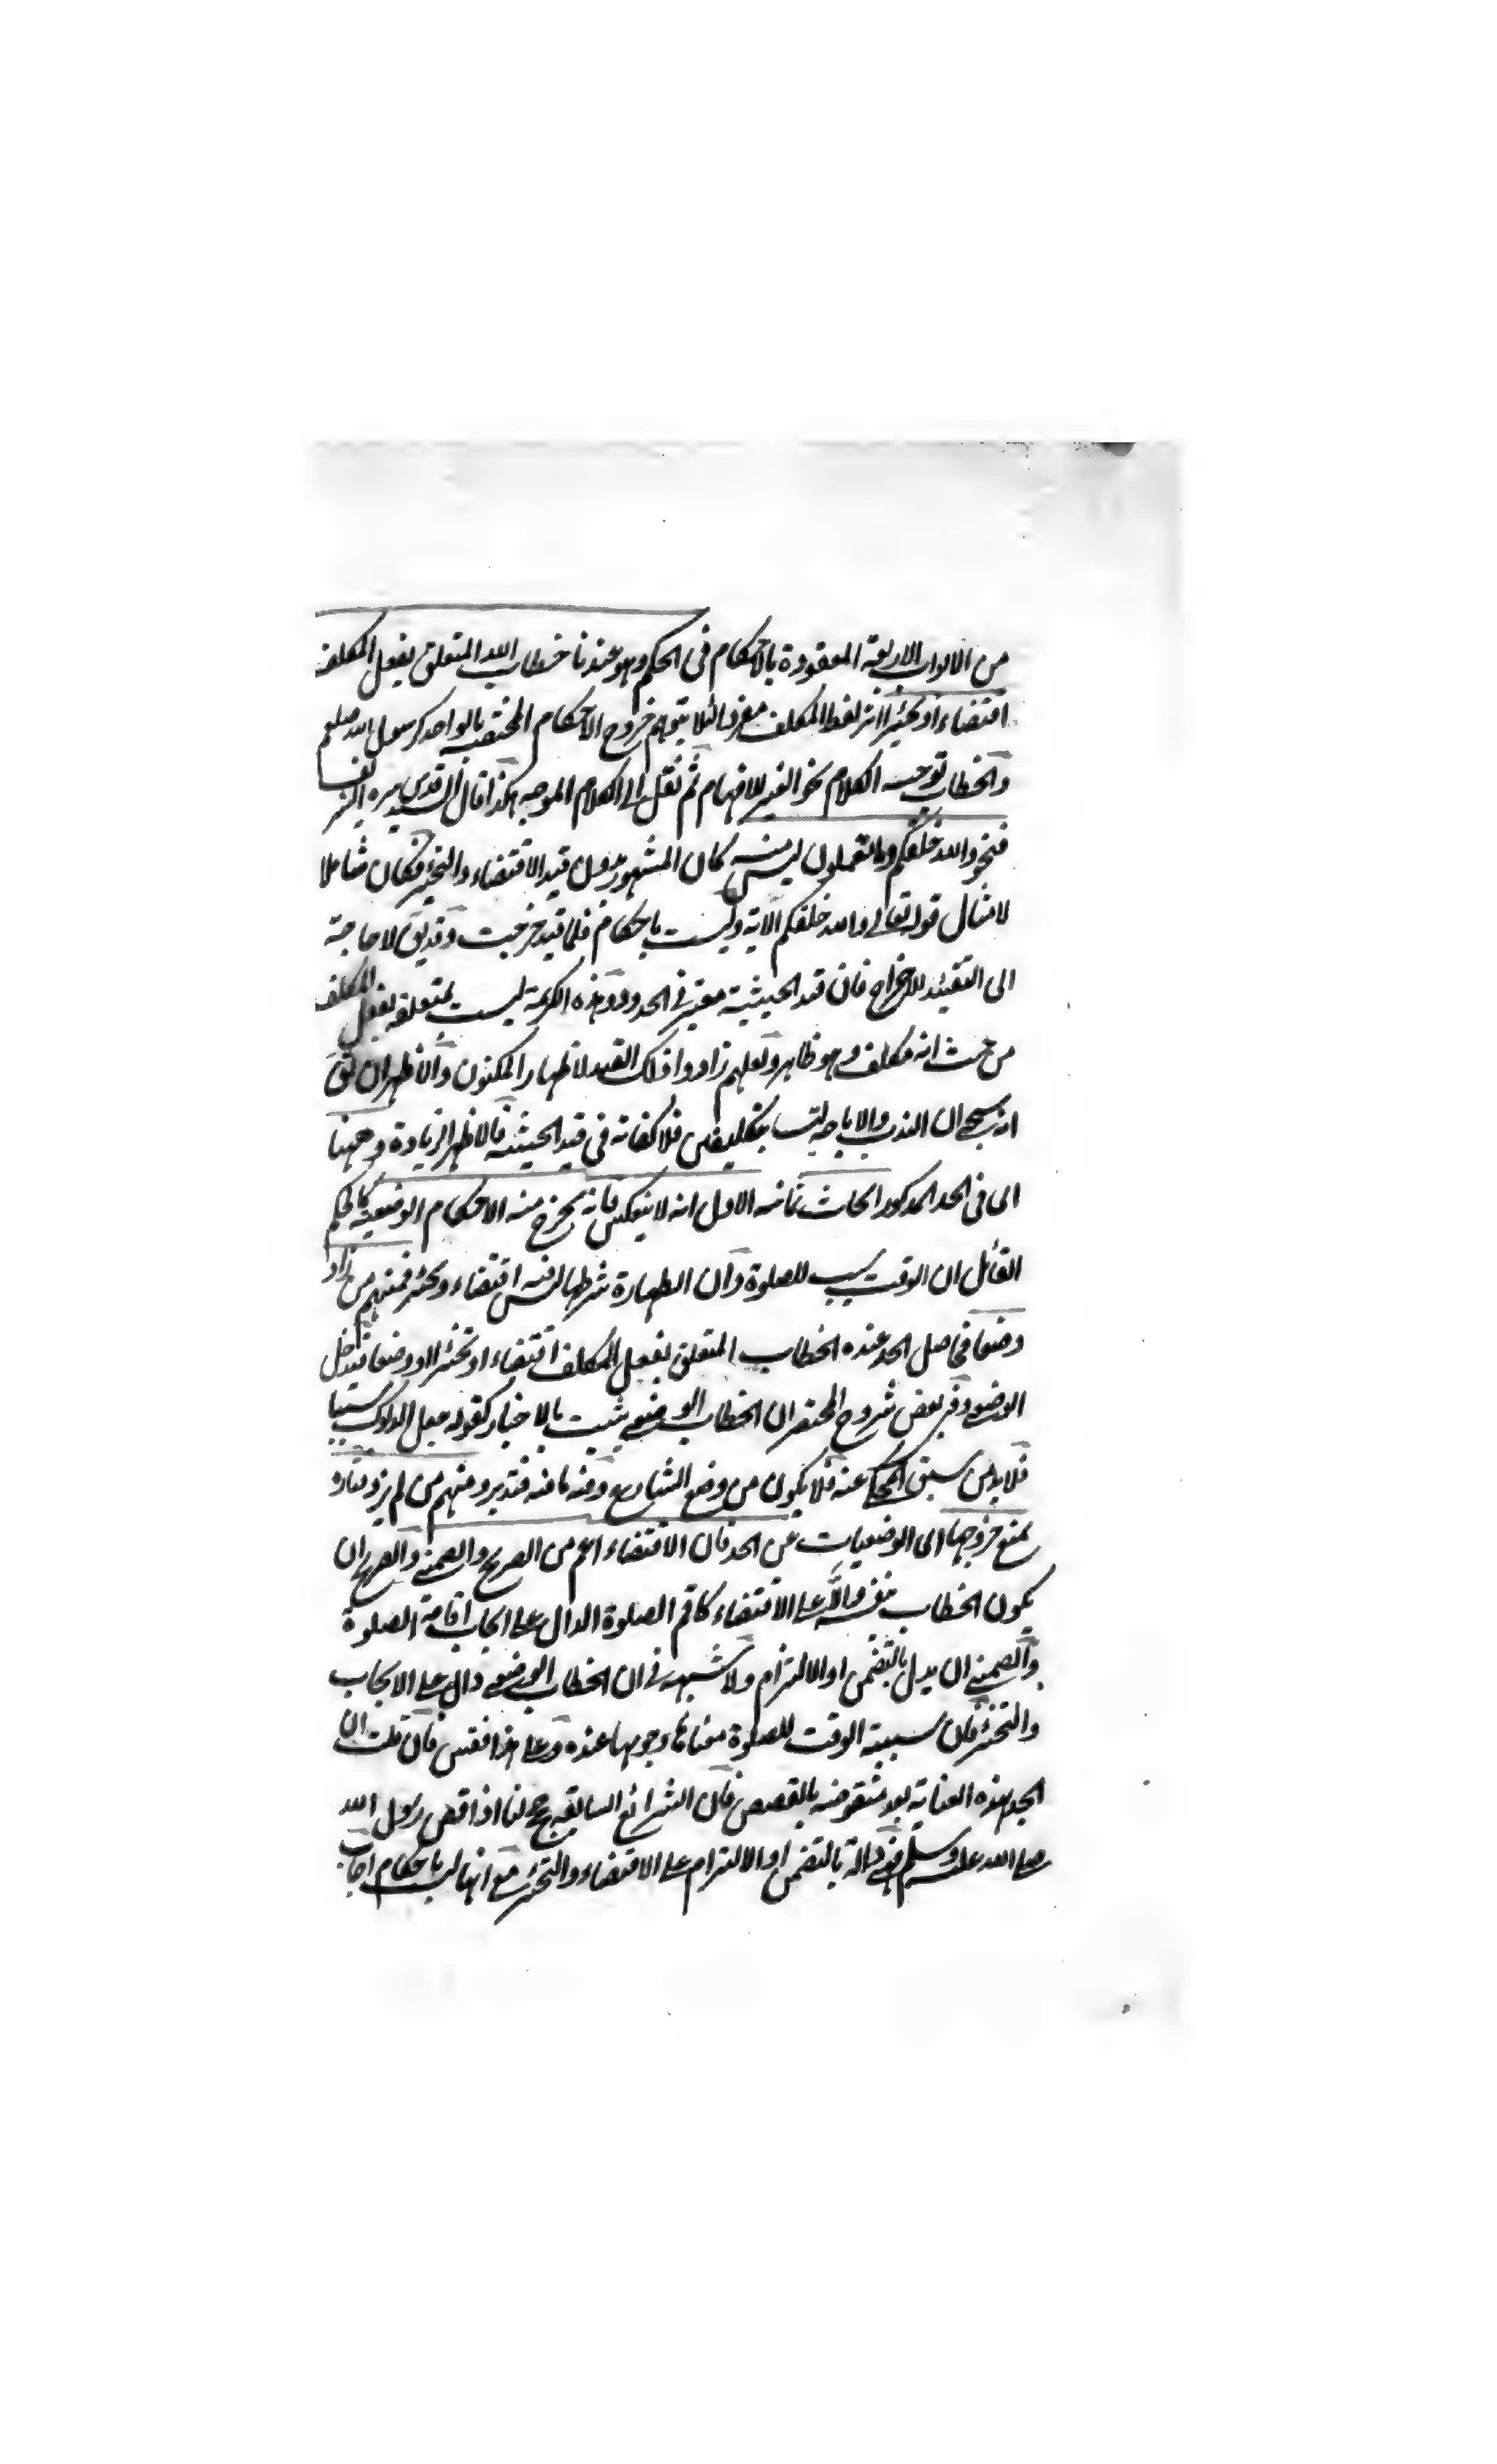 من الابواب الاربعة المعقودة بالاحكام فى الحكم وهو عندنا خطاب الله المتعلق بفعل المكلف
اقتضاء او تخييرا انثر لفظ المكلف مفردا لئلا يتوهم خروج الاحكام المختصة بالواحد كرسول الله صلعم
والخطاب توجيه الكلام نحو الغير للافهام ثم نقل الى الكلام الموجه هكذا قال السيد قدس سره الشريف
فنحو والله خلقكم وما تعملون ليس منه كان المشهور بدون قيد الاقتضاء والتخيير فكان شاملا
لامثال قوله تعالى والله خلقكم الآية وليست باحكام فلما قيد خرجت وقد يق لا حاجة
الى التقييد للاخراج فان قيد الحيثية معتبر فى الحدود وهذه الكريمة ليست بمتعلقه بفعل المكلف
من حيث انه مكلف وهو ظاهر ولعلهم زادوا ذلك القيد لاظهار المكنون والاظهر ان يق
انه سيجئ ان الندب والاباحة ليسا بتكليفين فلا كفاية فى قيد الحيثية فالاظهر الزيادة وههنا
اى فى الحد المذكور ابحاث ثمانية الاول انه لا ينعكس فانه يخرج منه الاحكام الوضعية كالحكم
القائل ان الوقت سبب للصلوة وان الطهارة شرطها ليس فيه اقتضاء وتخيير فمنهم من زاد
وضعا فحاصل الحد عنده الخطاب المتعلق بفعل المكلف اقتضاء او تخييرا او وضعا فيدخل
الوضعى وفى بعض شروح المختصر ان الخطاب الوضعى يثبت بالاخبار كقوله جعل الدلوك سببا
فلا بد من سبق المحكى عنه فلا يكون من وضع الشارع وفيه ما فيه فتدبر ومنهم من لم يزد وتارة
يمنع خروجها اى الوضعيات عن الحد فان الاقتضاء اعم من الصريح والضمنى والصريح ان
يكون الخطاب بنفسه دالا على الاقتضاء كاقم الصلوة الدال على ايجاب اقامة الصلوة
والضمنى ان يدل بالتضمن او الالتزام ولا شبهة فى ان الخطاب الوضعى دال على الايجاب
والتخيير فان سببية الوقت للصلوة معناها وجوبها عنده وعلى هذا فقس فان قلت ان
الحد بهذه العناية بعد منقوضة بالقصص فان الشرائع السابقة حجج لنا اذا قص رسول الله
صلى الله عليه وسلم فهى دالة بالتضمن او الالتزام على الاقتضاء والتخيير مع انها ليست باحكام اجاب